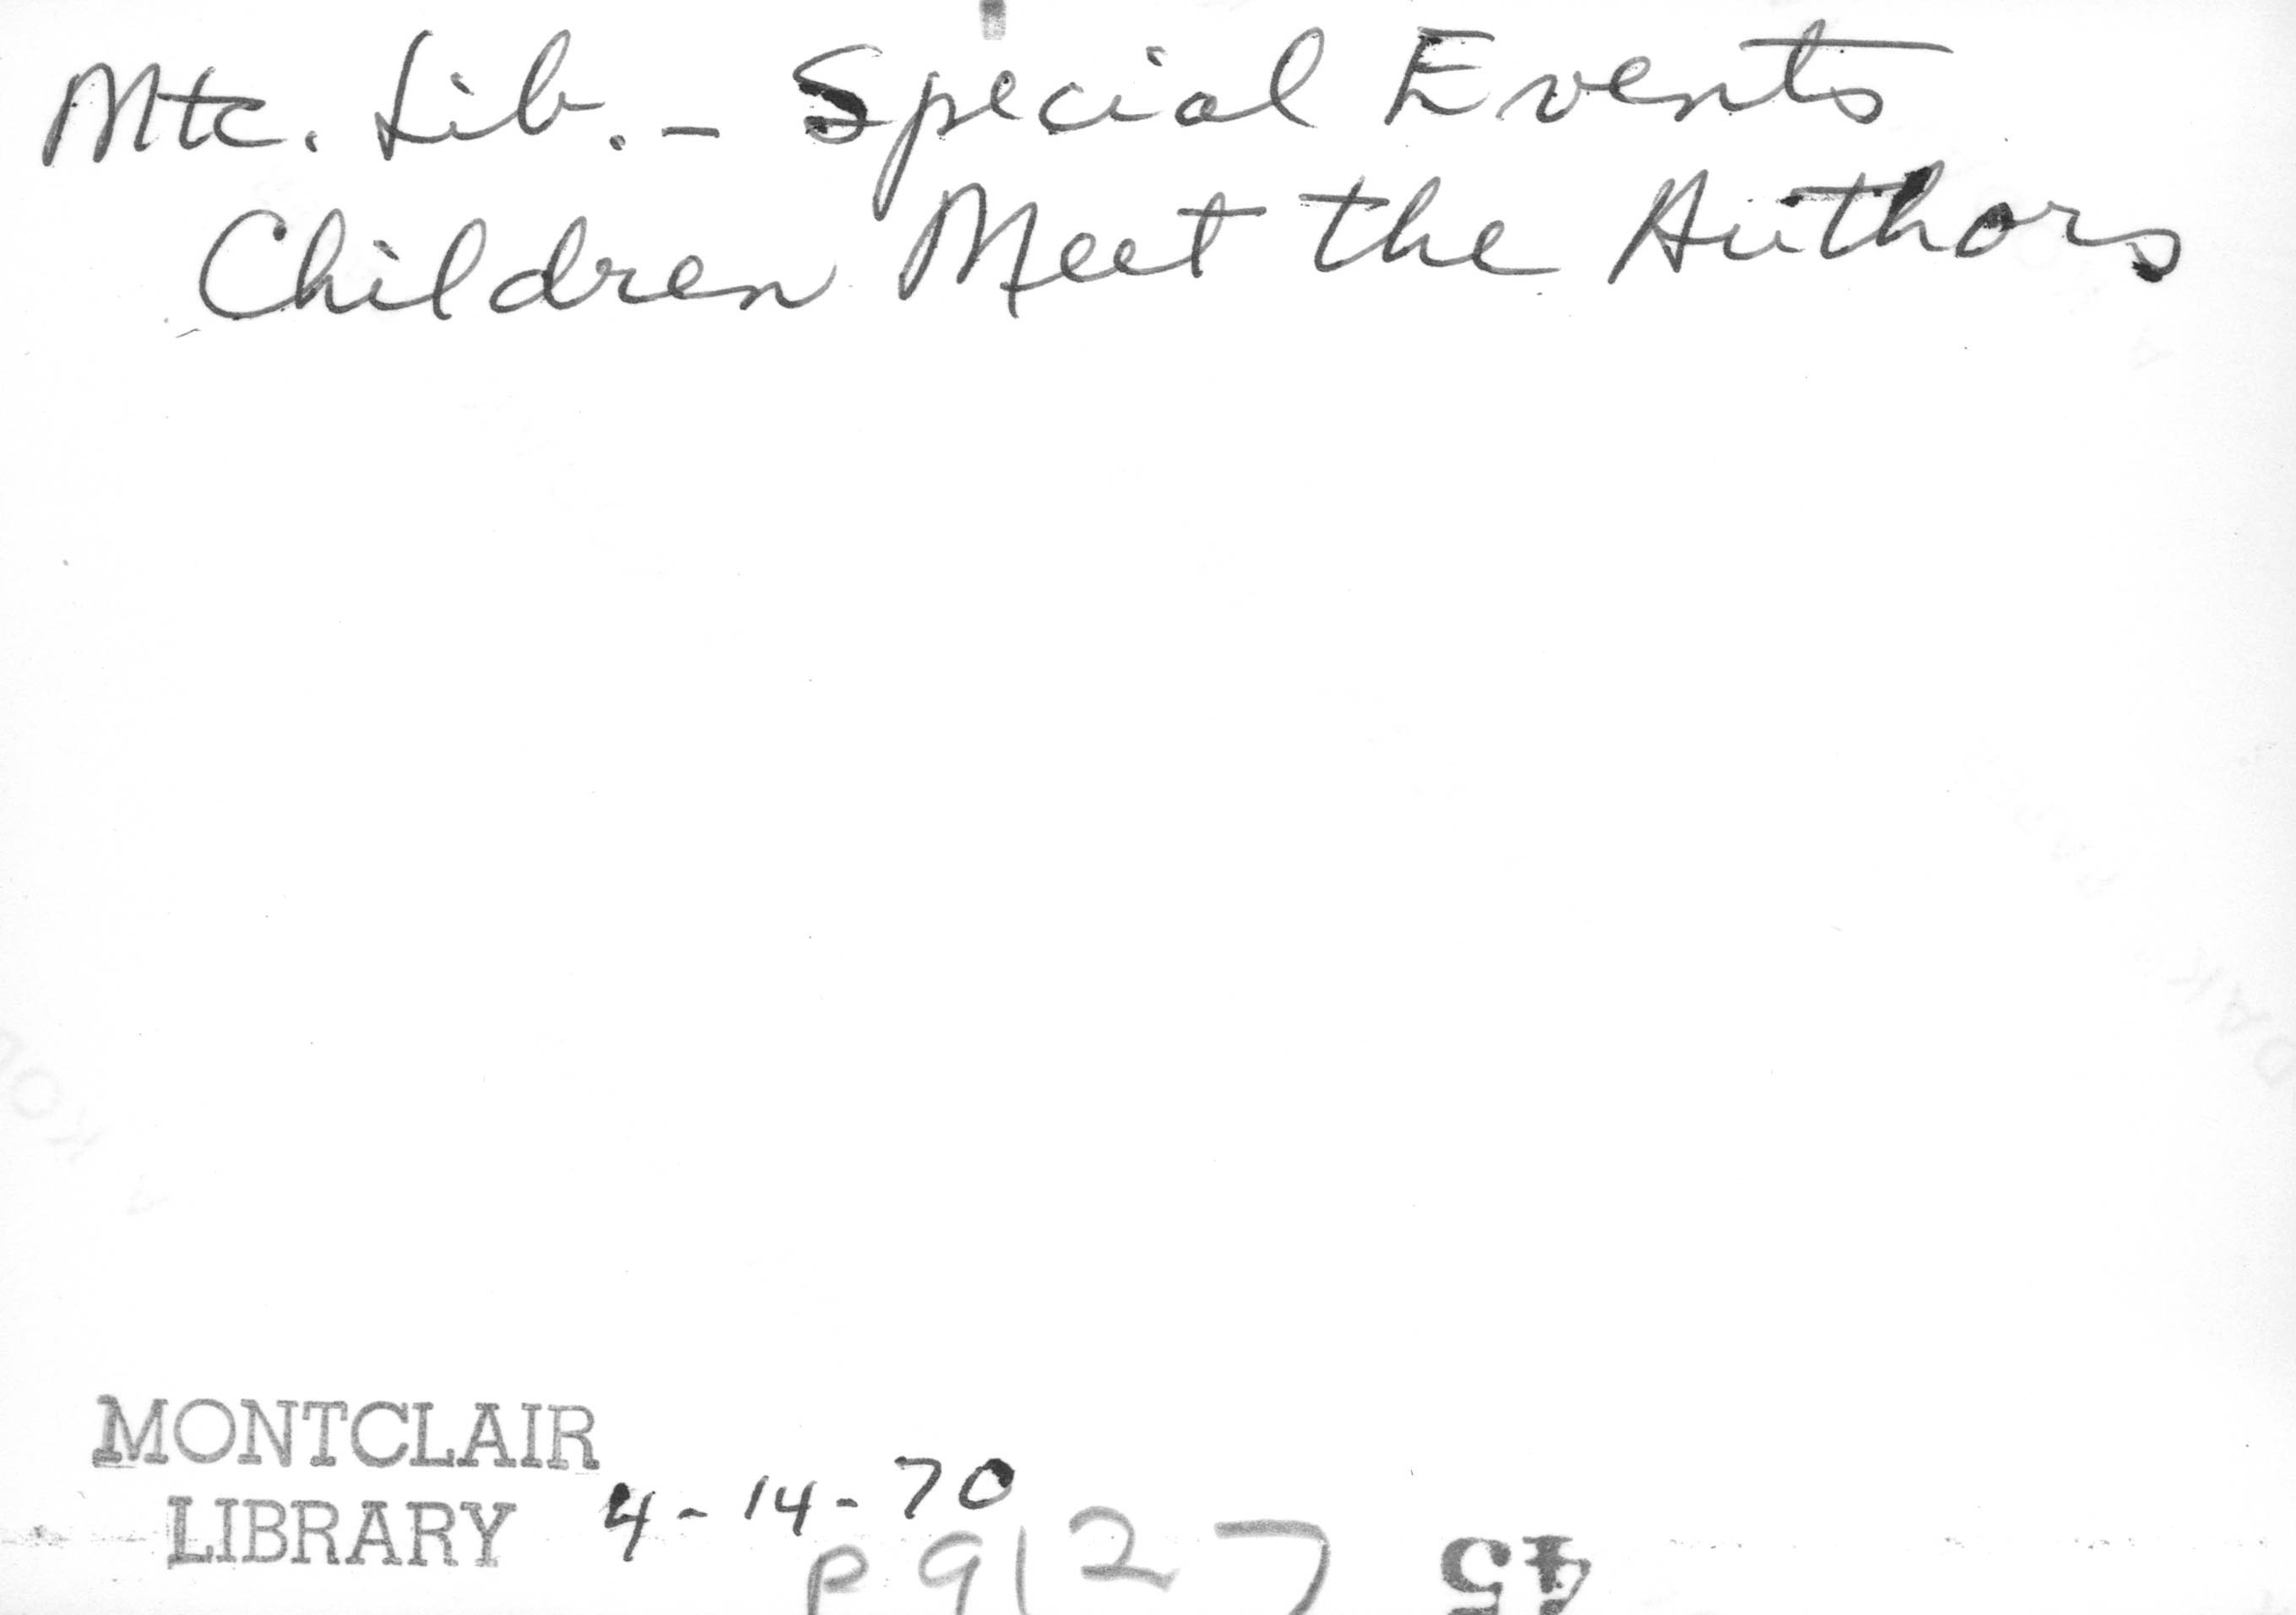 Mtc. Lib. - Special Events
Children Meet the Authors
MONTCLAIR
LIBRARY
4-14-70
P9127
45